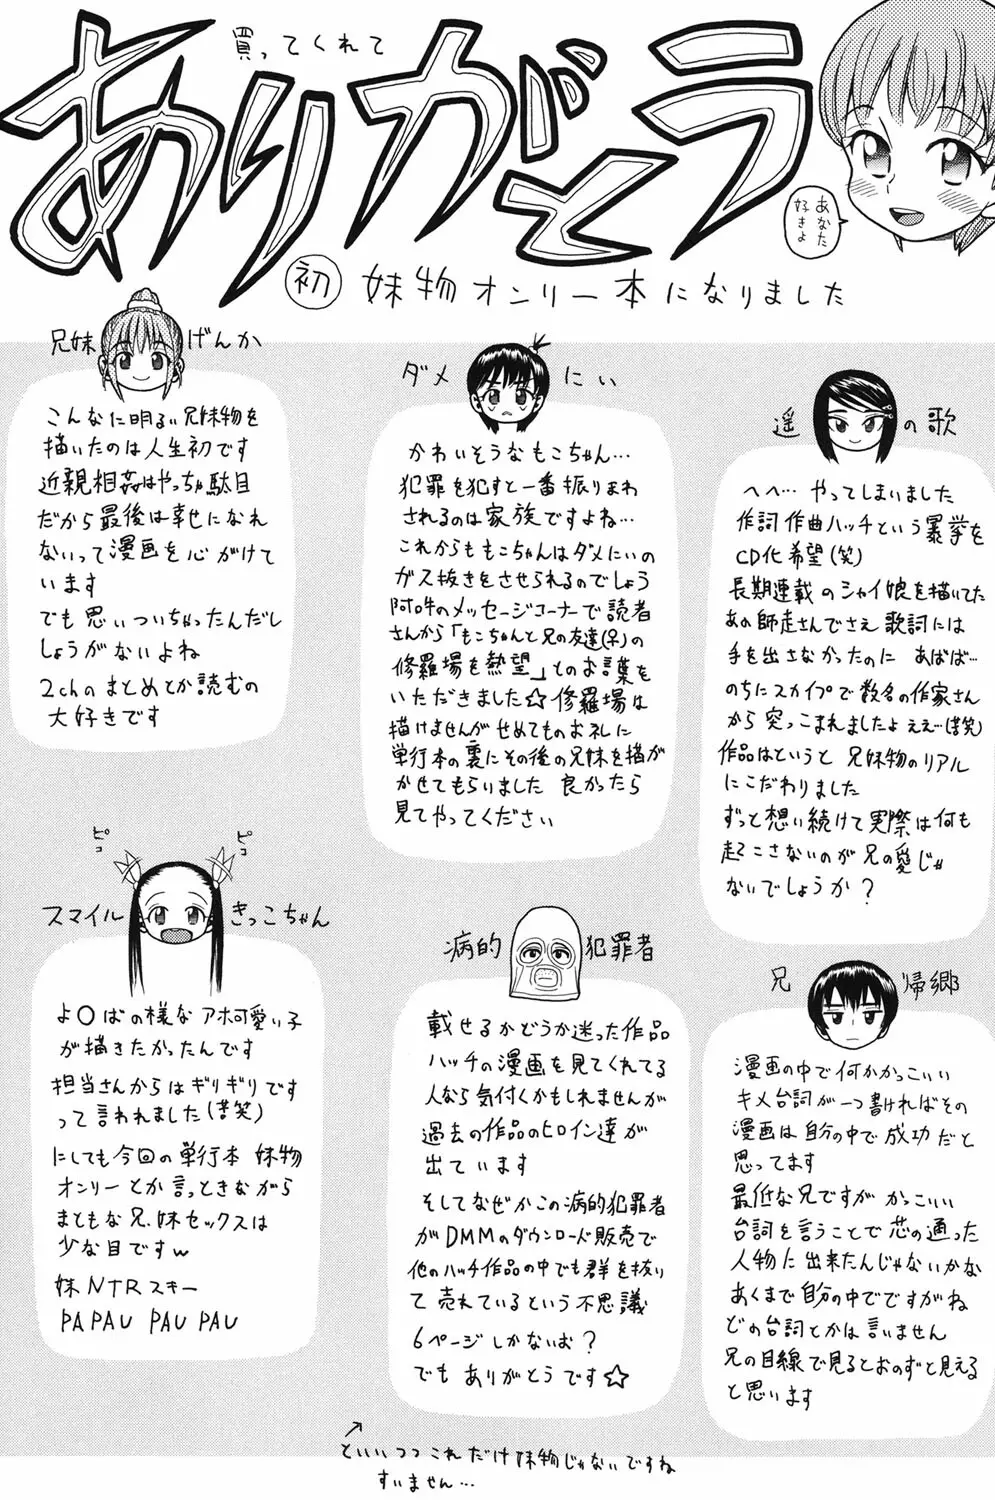 買ってくれて
ありがとう
あなた
好きよ
初 妹物オンリー本になりました
兄妹げんか
こんなに明るい兄妹物を
描いたのは人生初です
近親相姦はやっちゃ駄目
だから最後は幸せになれ
ないって漫画を心がけて
います
でも思いついちゃったんだし
しょうがないよね
2chのまとめとか読むの
大好きです
ダメにい
かわいそうなもこちゃん…
犯罪を犯すと一番振りまわ
されるのは家族ですよね…
これからももこちゃんはダメにいの
ガス抜きをさせられるのでしょう
阿吽のメッセージコーナーで読者
さんから「もこちゃんと兄の友達(♀)の
修羅場を熱望」とのお言葉を
いただきました☆修羅場は
描けませんがせめてものお礼に
単行本の裏にその後の兄妹を描が
かせてもらいました 良かったら
見てやってください
遥の歌
へへ…やってしまいました
作詞作曲ハッチという暴挙を
CD化希望(笑)
長期連載のシャイ娘を描いてた
あの師走さんでさえ歌詞には
手を出さなかったのに あばば…
のちにスカイプで数名の作家さん
から突っこまれましたよええ…(苦笑)
作品はというと 兄妹物のリアル
にこだわりました
ずっと想い続けて実際は何も
起こさないのが兄の愛じゃ
ないでしょうか?
ピコ
ピコ
スマイルきっこちゃん
よ〇ばの様なアホ可愛い子
が描きたかったんです
担当さんからはギリギリです
って言われました(苦笑)
にしても今回の単行本 妹物
オンリーとか言っときながら
まともな兄.妹セックスは
少な目ですw
妹NTRスキー
PAPAU PAU PAU
病的犯罪者
載せるかどうか迷った作品
ハッチの漫画を見てくれてる
人なら気付くかもしれませんが
過去の作品のヒロイン達が
出ています
そしてなぜかこの病的犯罪者
がDMMのダウンロード販売で
他のハッチ作品の中でも群を抜い
て売れているという不思議
6ページしかないお?
でもありがとうです☆
といいつつこれだけ妹物じゃないですね
すいません…
兄帰郷
漫画の中で何かかっこいい
キメ台詞が一つ書ければその
漫画は自分の中で成功だと
思ってます
最低な兄ですがかっこいい
台詞を言うことで芯の通った
人物に出来たんじゃないかな
あくまで自分の中でですがね
どの台詞とかは言いません
兄の目線で見るとおのずと見える
と思います